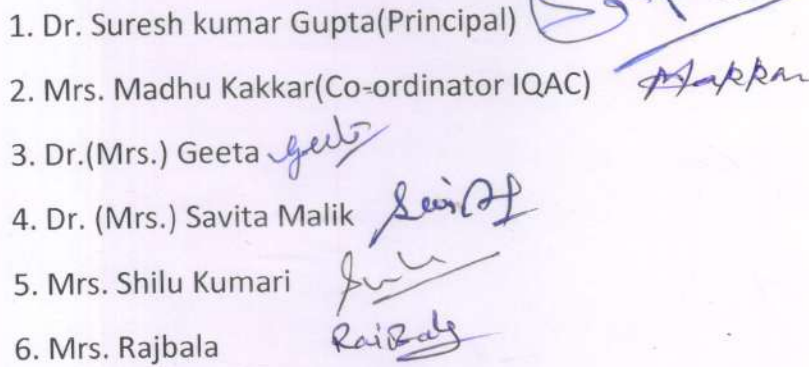 1. Dr. Suresh kumar Gupta(Principal)
2. Mrs. Madhu Kakkar(Co-ordinator IQAC) MaKKar
3. Dr.(Mrs.) Geeta geeta
4. Dr. (Mrs.) Savita Malik
5. Mrs. Shilu Kumari
6. Mrs. Rajbala RajBala